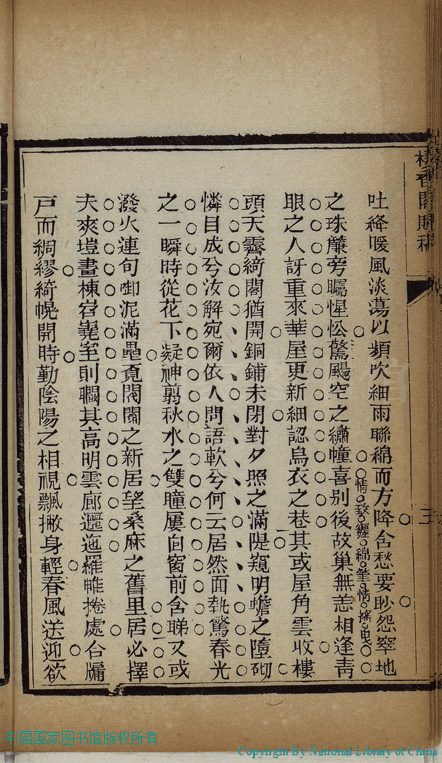 香閣賦稿
吐絳暖風淡蕩以頻吹細雨聯綿而方降含愁要眇怨窣地
情致纏綿筆情搖曳
之珠簾旁矚惺忪驚颺空之繡幢喜別後故巢無恙相逢靑
眼之人訝重來華屋更新細認烏衣之巷其或屋角雲收樓
頭天霽綺閣猶開銅鋪未閉對夕照之滿隄窺明蟾之墮砌
憐目成兮汝解宛爾依人問語軟兮何云居然面執驚春光
之一瞬時從花下凝神翦秋水之雙瞳屢自窗前含睇又或
潑火連旬啣泥滿壘覓閥閱之新居望桑麻之舊里居必擇
夫爽塏畫棟窅室則瞷其高明雲廊邐迤羅帷捲處合牖
戶而綢繆綺幌開時勤陰陽之相視飄撇身輕春風送迎欲
三
中国国家图书馆版权所有
Copyright By National Library of China